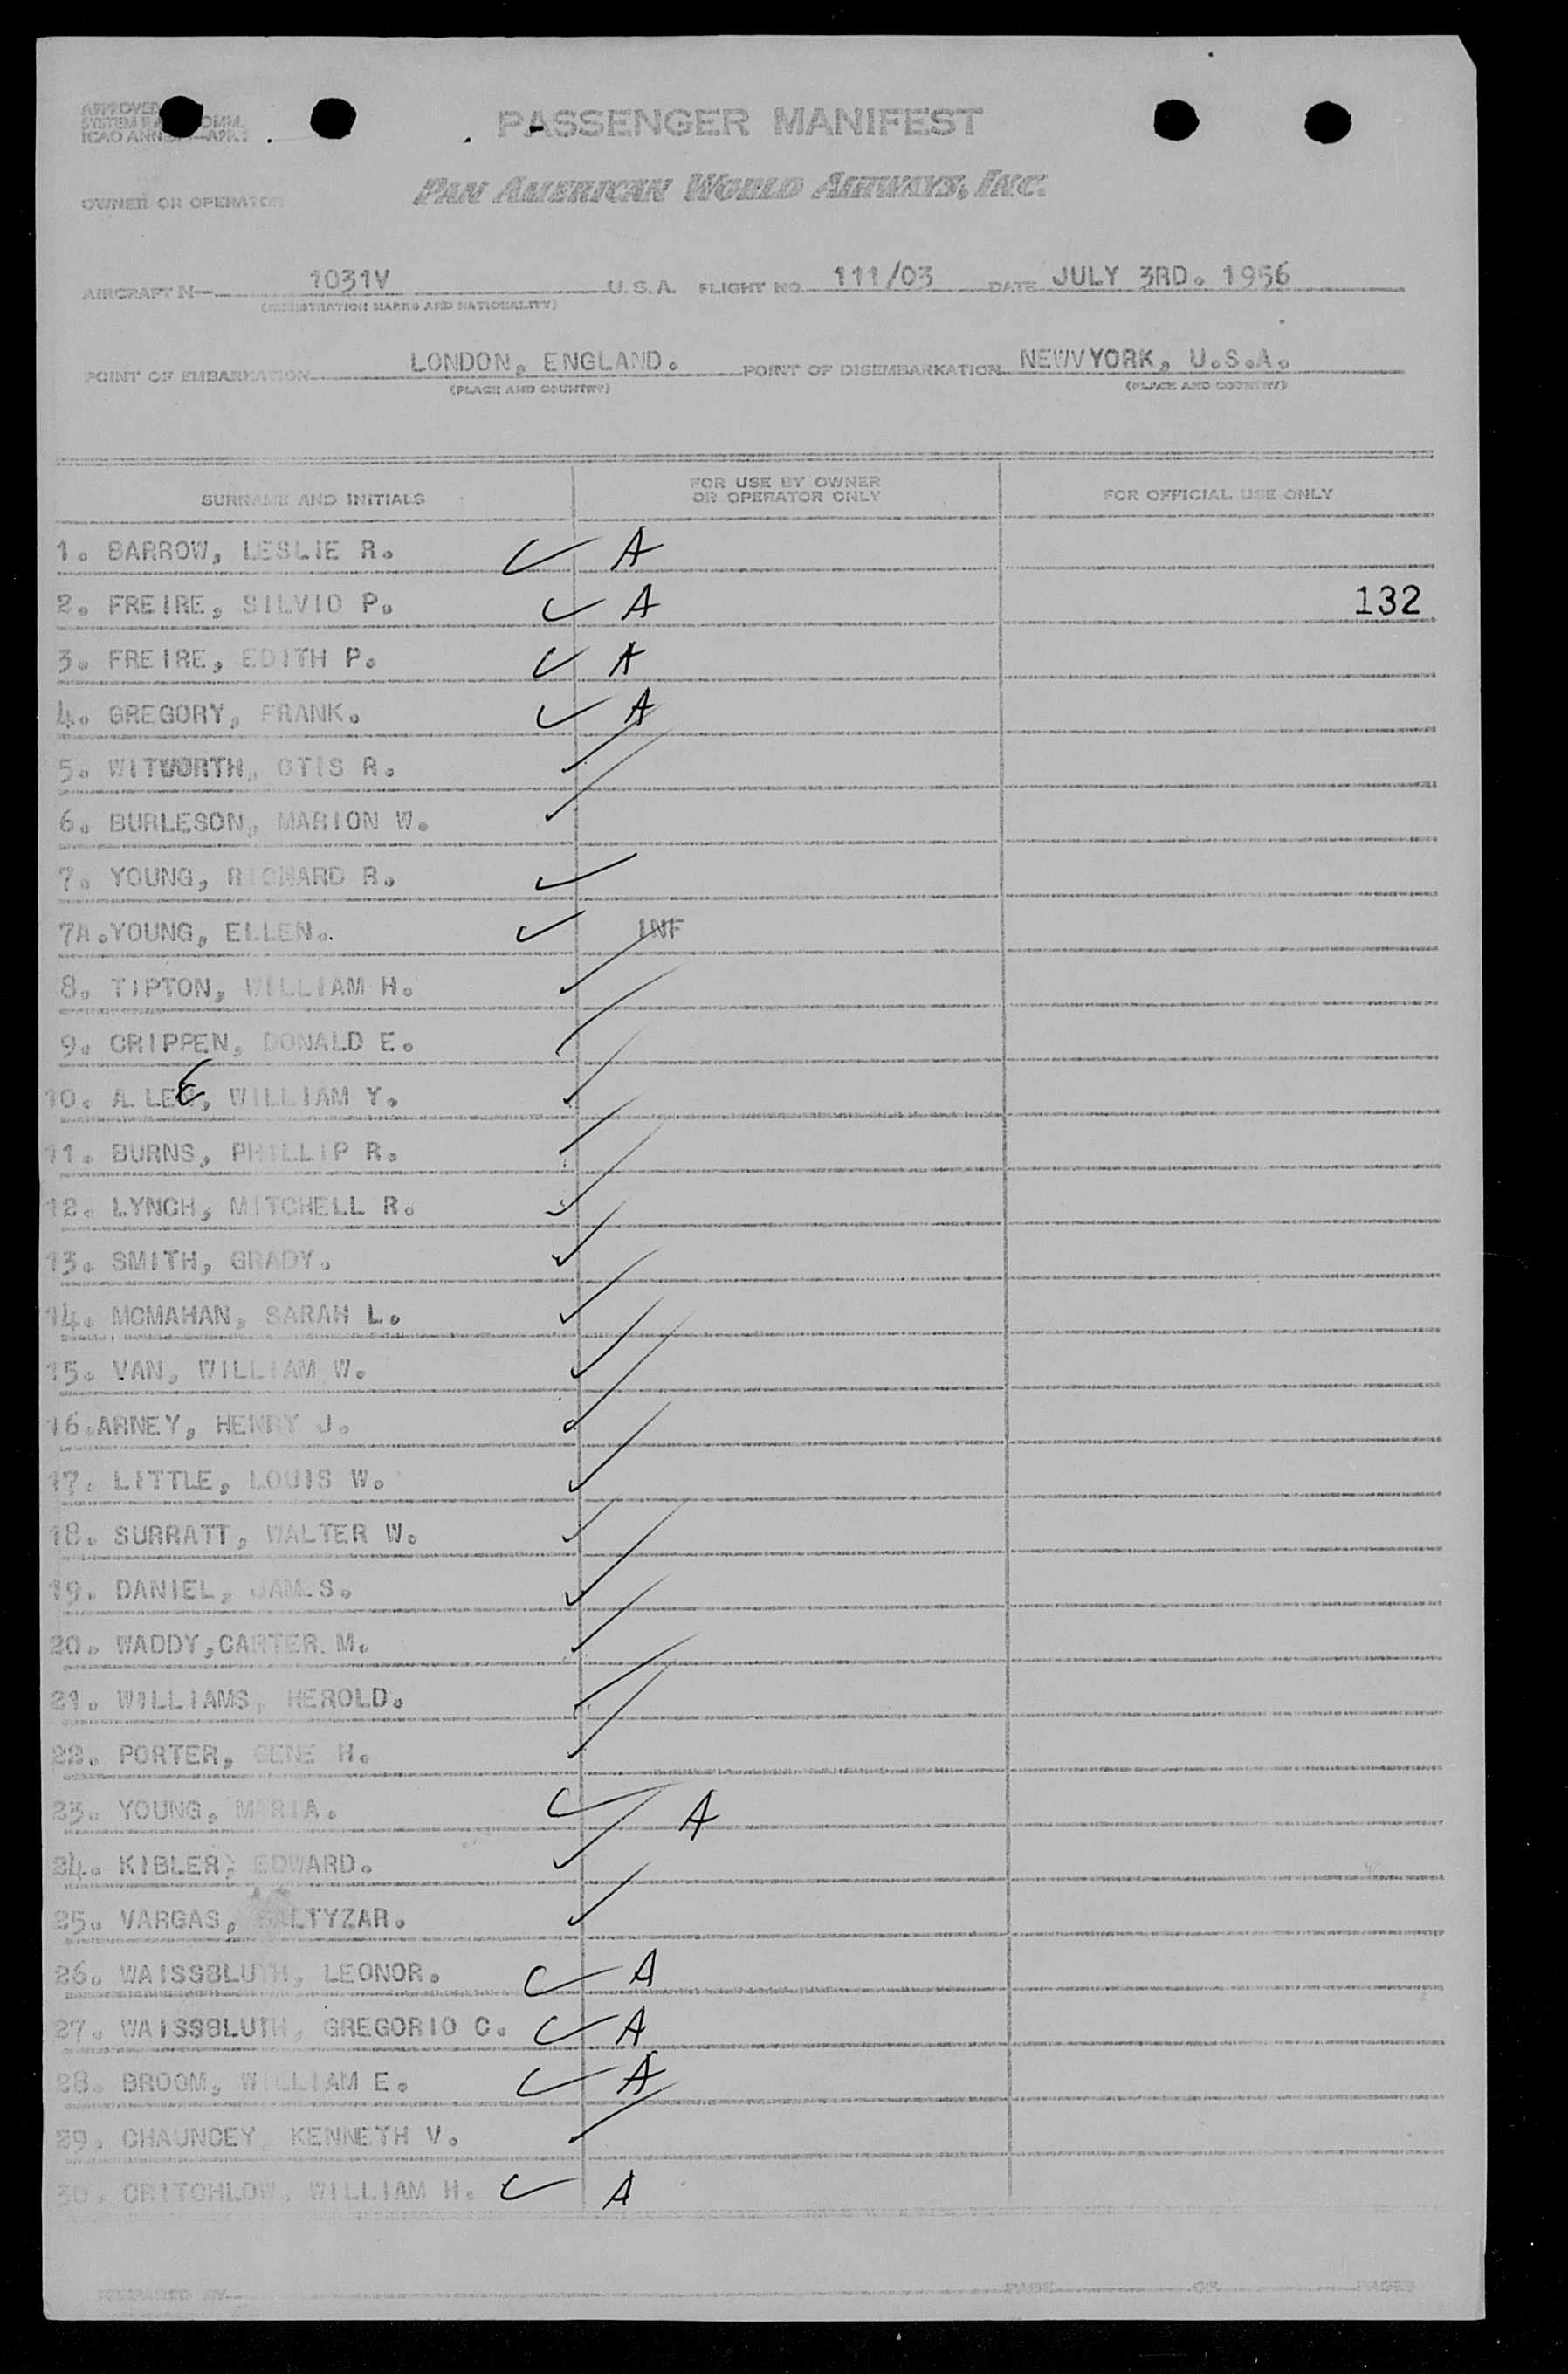 APPROVED
SYSTEM COMM.
ICAO
PASSENGER MANIFEST
OWNER OR OPERATOR PAN AMERICAN WORLD AIRWAYS, INC.
AIRCRAFT N- 1031V U.S.A. FLIGHT NO. 111/03 DATE JULY 3RD. 1956
(REGISTRATION MARKS AND NATIONALITY)
POINT OF EMBARKATION LONDON, ENGLAND. POINT OF DISEMBARKATION NEWVYORK, U.S.A.
(PLACE AND COUNTRY) (PLACE AND COUNTRY)
SURNAME AND INITIALS FOR USE BY OWNER OR OPERATOR ONLY FOR OFFICIAL USE ONLY
1. BARROW, LESLIE R. ✓ A
2. FREIRE, SILVIO P. ✓ A 132
3. FREIRE, EDITH P. ✓ A
4. GREGORY, FRANK. ✓ A
5. WITWORTH, OTIS R.
6. BURLESON, MARION W.
7. YOUNG, RICHARD R. ✓
7A. YOUNG, ELLEN. ✓ INF
8. TIPTON, WILLIAM H.
9. CRIPPEN, DONALD E.
10. A LEE, WILLIAM Y.
11. BURNS, PHILLIP R.
12. LYNCH, MITCHELL R.
13. SMITH, GRADY.
14. MCMAHAN, SARAH L.
15. VAN, WILLIAM W.
16.ARNEY, HENRY J.
17. LITTLE, LOUIS W.
18. SURRATT, WALTER W.
19. DANIEL, JAM.S.
20. WADDY,CARTER M.
21. WILLIAMS, HEROLD.
22. PORTER, GENE H.
23. YOUNG, MARIA. ✓ A
24. KIBLER, EDWARD.
25. VARGAS, BALTYZAR.
26. WAISSBLUTH, LEONOR. ✓ A
27. WAISSBLUTH, GREGORIO C. ✓ A
28. BROOM, WILLIAM E. ✓ A
29. CHAUNCEY, KENNETH V.
30. CRITCHLOW, WILLIAM H. ✓ A
PREPARED BY PAGE OF PAGES